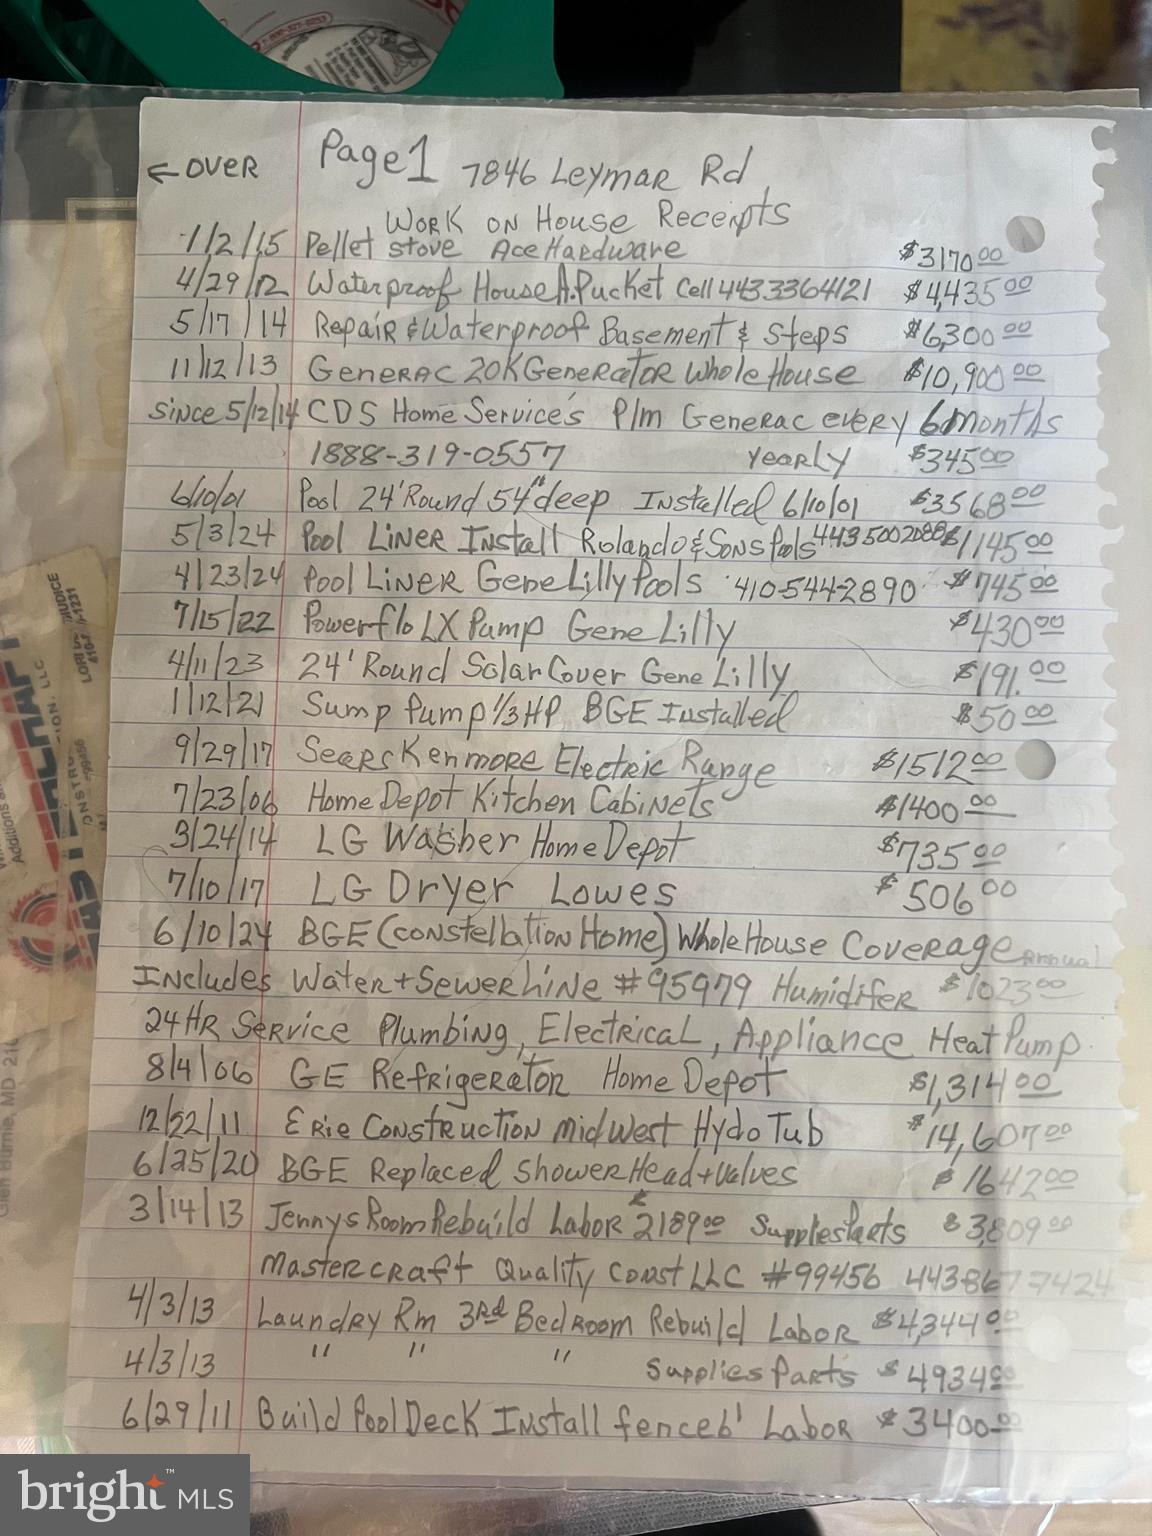 1-800-327-0253
← OVER Page 1 7846 Leymar Rd
Work on House Receipts
1/2/15 Pellet stove Ace Hardware $3170.00
4/29/12 Waterproof House A. Pucket Cell 4433364121 $4,435.00
5/17/14 Repair & Waterproof Basement & Steps $6,300.00
11/12/13 Generac 20K Generator Whole House $10,900.00
Since 5/12/14 CDS Home Service's P/m Generac every 6 months
1888-319-0557 yearly $345.00
6/10/01 Pool 24' Round 54" deep Installed 6/10/01 $3568.00
5/3/24 Pool Liner Install Rolando & Sons Pools 4435002088 $1145.00
4/23/24 Pool Liner Gene Lilly Pools 410-544-2890 $745.00
7/15/22 Powerflo LX Pump Gene Lilly $430.00
4/11/23 24' Round Solar Cover Gene Lilly $191.00
1/12/21 Sump Pump 1/3 HP BGE Installed $50.00
9/29/17 Sears Kenmore Electric Range $1512.00
7/23/06 Home Depot Kitchen Cabinets $1400.00
3/24/14 LG Washer Home Depot $735.00
7/10/17 LG Dryer Lowes $506.00
6/10/24 BGE (Constellation Home) Whole House Coverage Annual
Includes Water + Sewer Line #95979 Humidifer $1023.00
24 HR Service Plumbing, Electrical, Appliance Heat Pump
8/4/06 GE Refrigerator Home Depot $1,314.00
12/22/11 Erie Construction midwest Hydo Tub $14,607.00
6/25/20 BGE Replaced Shower Head + Valves $1642.00
3/14/13 Jennys Room Rebuild Labor $2189.00 Supplies Parts $3,809.00
Mastercraft Quality Const LLC #99456 443 867 7424
4/3/13 Laundry Rm 3rd Bedroom Rebuild Labor $4,344.00
4/3/13 " " " Supplies Parts $4934.00
6/29/11 Build Pool Deck Install fence 6' Labor $3400.00
Glen Burnie, MD
bright™ MLS